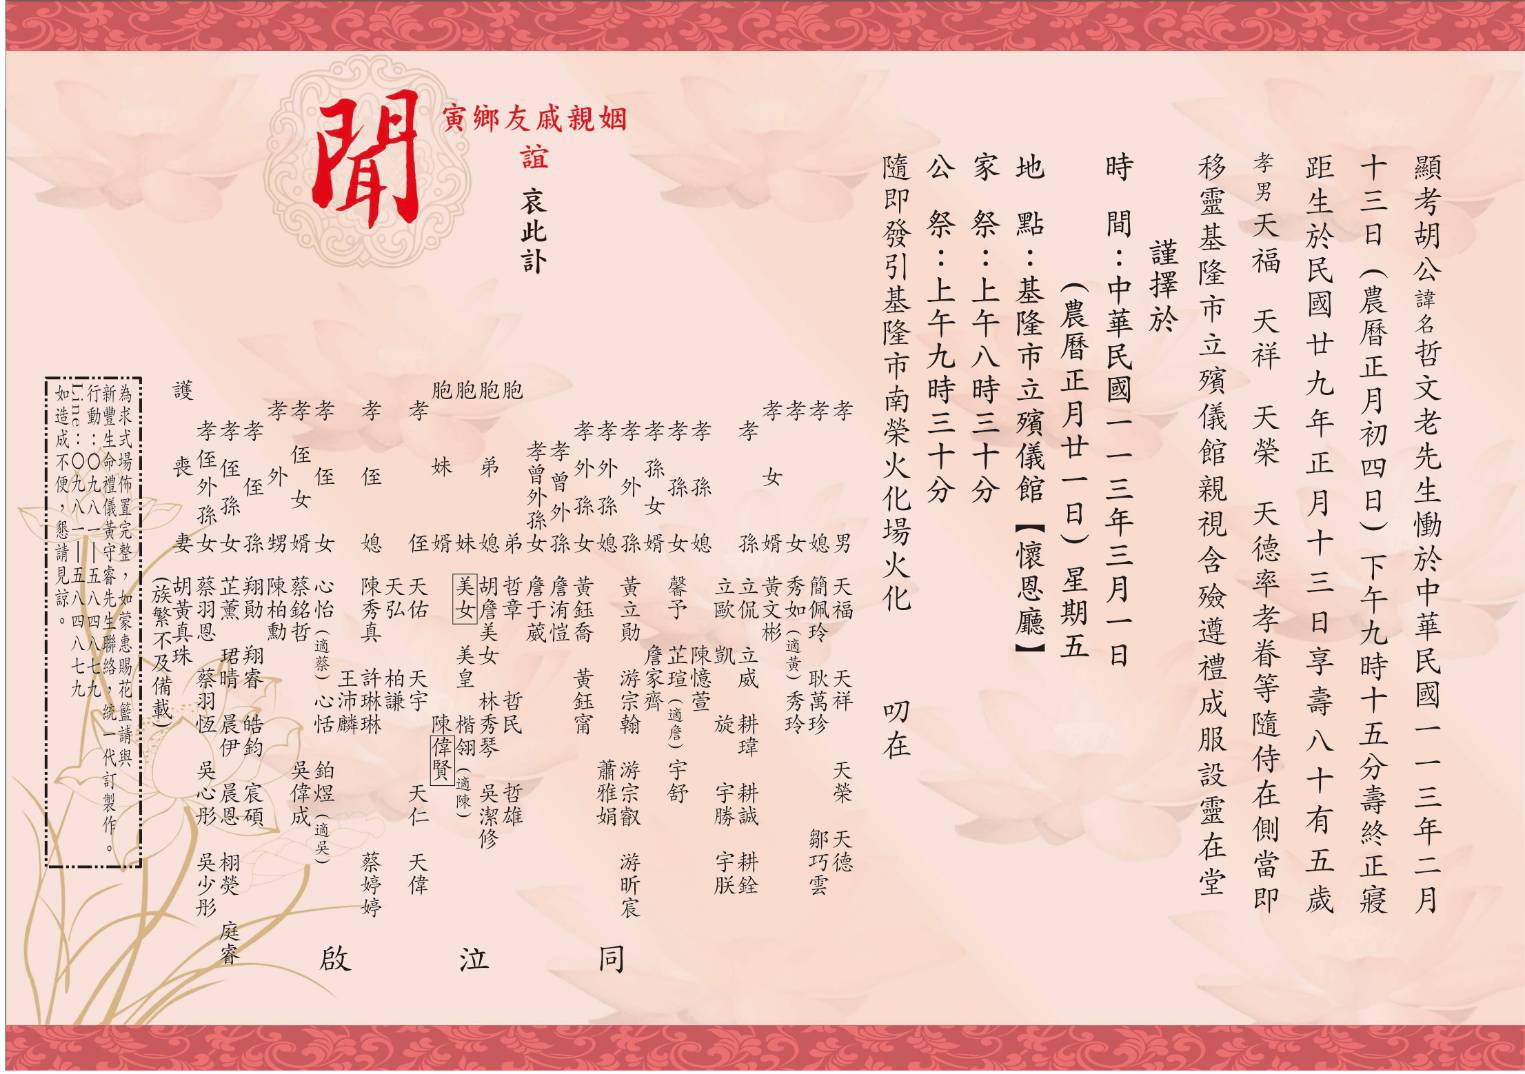 顯考胡公諱名哲文老先生慟於中華民國一一三年二月
十三日(農曆正月初四日)下午九時十五分壽終正寢
距生於民國廿九年正月十三日享壽八十有五歲
孝男天福 天祥 天榮 天德率孝眷等隨侍在側當即
移靈基隆市立殯儀館親視含殮遵禮成服設靈在堂
謹擇於
時 間：中華民國一一三年三月一日
(農曆正月廿一日)星期五
地 點：基隆市立殯儀館【懷恩廳】
家 祭：上午八時三十分
公 祭：上午九時三十分
隨即發引基隆市南榮火化場火化 叨在
姻親戚友鄉寅
誼 哀此訃
聞
孝男 天福 天祥 天榮 天德
孝媳 簡佩玲 耿萬珍 鄒巧雲
孝女 秀如(適黃) 秀玲
孝女婿 黃文彬
孝孫 立侃 立威 耕瑋 耕誠 耕銓
立歐 凱旋 宇勝 宇朕
孝孫媳 陳憶萱
孝孫女 馨予 芷瑄(適詹) 宇舒
孝孫女婿 詹家齊
孝外孫 黃立勛 游宗翰 游宗叡 游昕宸
孝外孫媳 蕭雅娟
孝外孫女 黃鈺喬 黃鈺甯
孝曾外孫 詹洧愷
孝曾外孫女 詹于葳
胞弟 哲章 哲民 哲雄
胞弟媳 胡詹美女 林秀琴 吳潔修
胞妹 美女 美皇 楷翎(適陳)
胞妹婿 陳偉賢
孝侄 天佑 天宇 天仁 天偉
天弘 柏謙
孝侄媳 陳秀真 許琳琳 蔡婷婷
王沛麟
孝侄女 心怡(適蔡) 心恬 鉑煜(適吳)
孝侄女婿 蔡銘哲 吳偉成
孝外甥 陳柏勳
孝侄孫 翔勛 翔睿 皓鈞 宸碩
孝侄孫女 芷薰 珺晴 晨伊 晨恩 栩熒 庭睿
孝侄外孫女 蔡羽恩 蔡羽恆 吳心彤 吳少彤
護喪妻 胡黃真珠
(族繁不及備載)
同泣啟
為求式場佈置完整，如蒙惠賜花籃請與
新豐生命禮儀黃守睿先生聯絡，統一代訂製作。
行動：〇九八一—五八四八七九
Line：〇九八一—五八四八七九
如造成不便，懇請見諒。